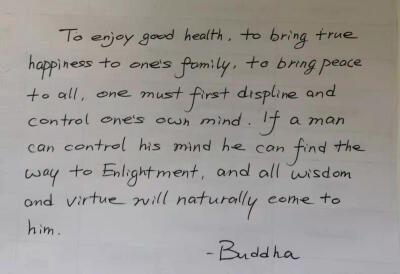 To enjoy good health, to bring true
happiness to one's family, to bring peace
to all, one must first displine and
control one's own mind. If a man
can control his mind he can find the
way to Enlightment, and all wisdom
and virtue will naturally come to
him.
- Buddha